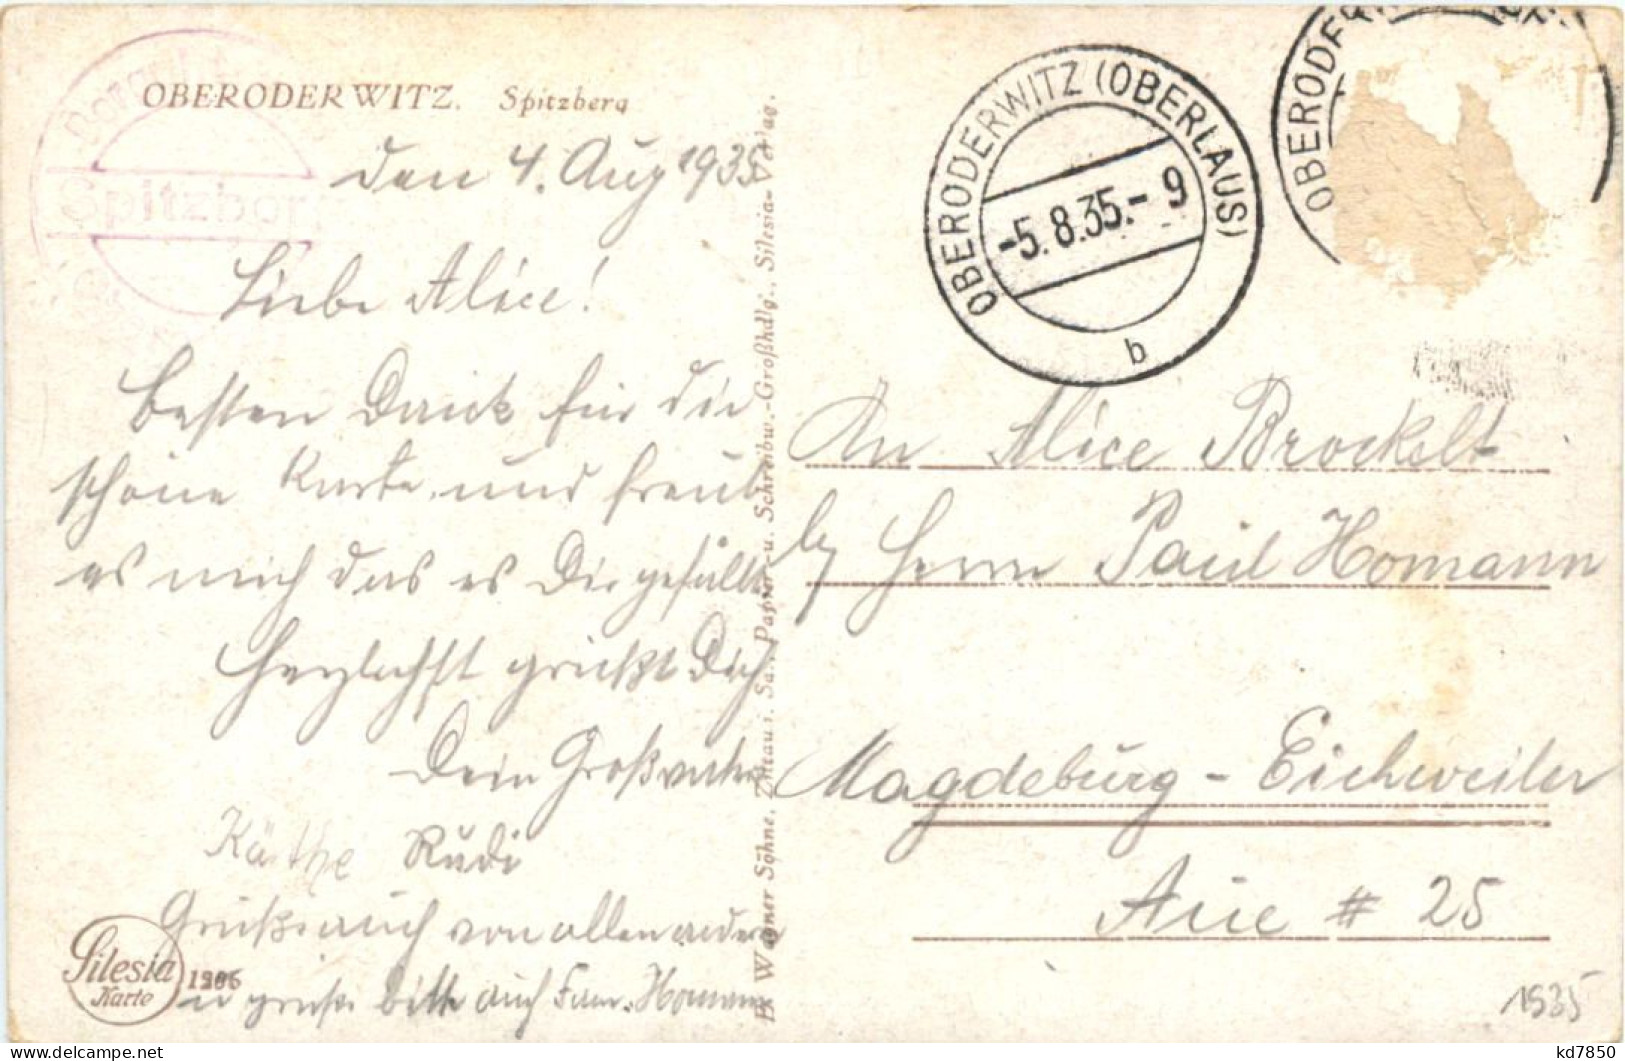 OBERODERWITZ. Spitzberg
Spitzber
den 4. Aug 1935
Liebe Alice!
besten Dank für die
schöne Karte, und freut
es mich das es Dir gefällt
Herzlichst grüßt Dich
Dein Großvater
Käthe Rudi
Grüße auch von allen andern
u grüße bitte auch Fam. Homann
Silesia
Karte
1206
B. Wagner Söhne, Zittau i. Sa., Papier- u. Schreibw.-Großhdlg., Silesia-Verlag.
OBERODERWITZ (OBERLAUS)
-5.8.35.-9
b
OBERODE
An Alice Brockelt
b/ Herrn Paul Homann
Magdeburg - Eichweiler
Aue # 25
1935
kd7850